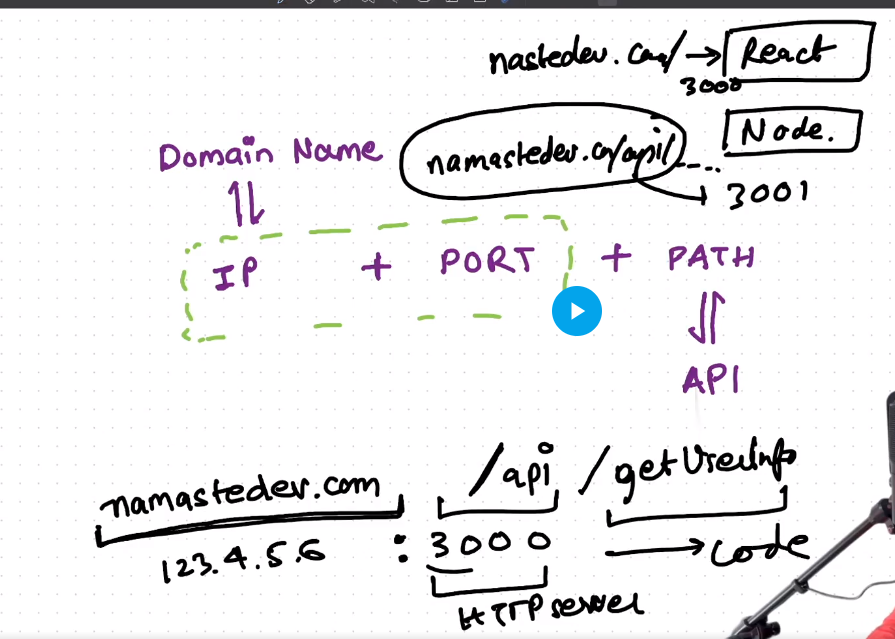 nastedev.com/ → React
3000
Domain Name
namastedev.com/api/ ---.. Node.
3001
IP + PORT + PATH
API
namastedev.com /api /getUserInfo
123.4.5.6 : 3000 → code
HTTP server